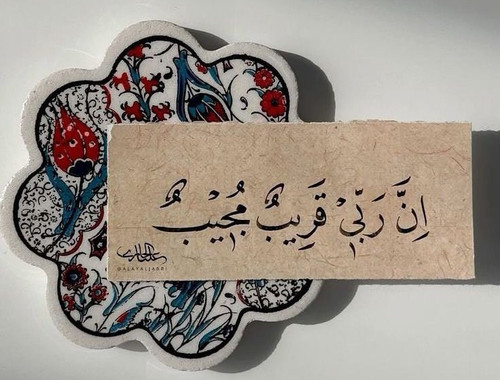 اِنَّ رَبِّيْ قَرِيبٌ مُجِيْبٌ
@ALAYALJABRI